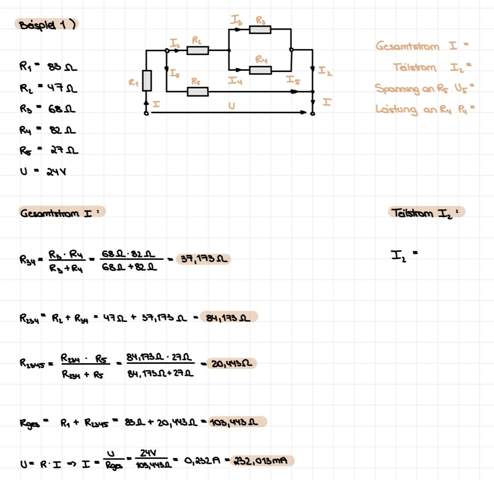 Beispiel 1)
R₁ = 83 Ω
R₂ = 47 Ω
R₃ = 68 Ω
R₄ = 82 Ω
R₅ = 27 Ω
U = 24V
I₂ R₂ I₃ R₃
R₁ I₅ I₄ R₄ I₅ I₂
R₅
I U I
Gesamtstrom I =
Teilstrom I₂ =
Spannung an R₅ U₅ =
Leistung an R₄ P₄ =
Gesamtstrom I :
R₃₄ = R₃ · R₄ / R₃ + R₄ = 68 Ω · 82 Ω / 68 Ω + 82 Ω = 37,173 Ω
R₂₃₄ = R₂ + R₃₄ = 47 Ω + 37,173 Ω = 84,173 Ω
R₂₃₄₅ = R₂₃₄ · R₅ / R₂₃₄ + R₅ = 84,173 Ω · 27 Ω / 84,173 Ω + 27 Ω = 20,443 Ω
Rges = R₁ + R₂₃₄₅ = 83 Ω + 20,443 Ω = 103,443 Ω
U = R · I ⇒ I = U / Rges = 24V / 103,443 Ω = 0,232A = 232,013mA
Teilstrom I₂ :
I₂ =